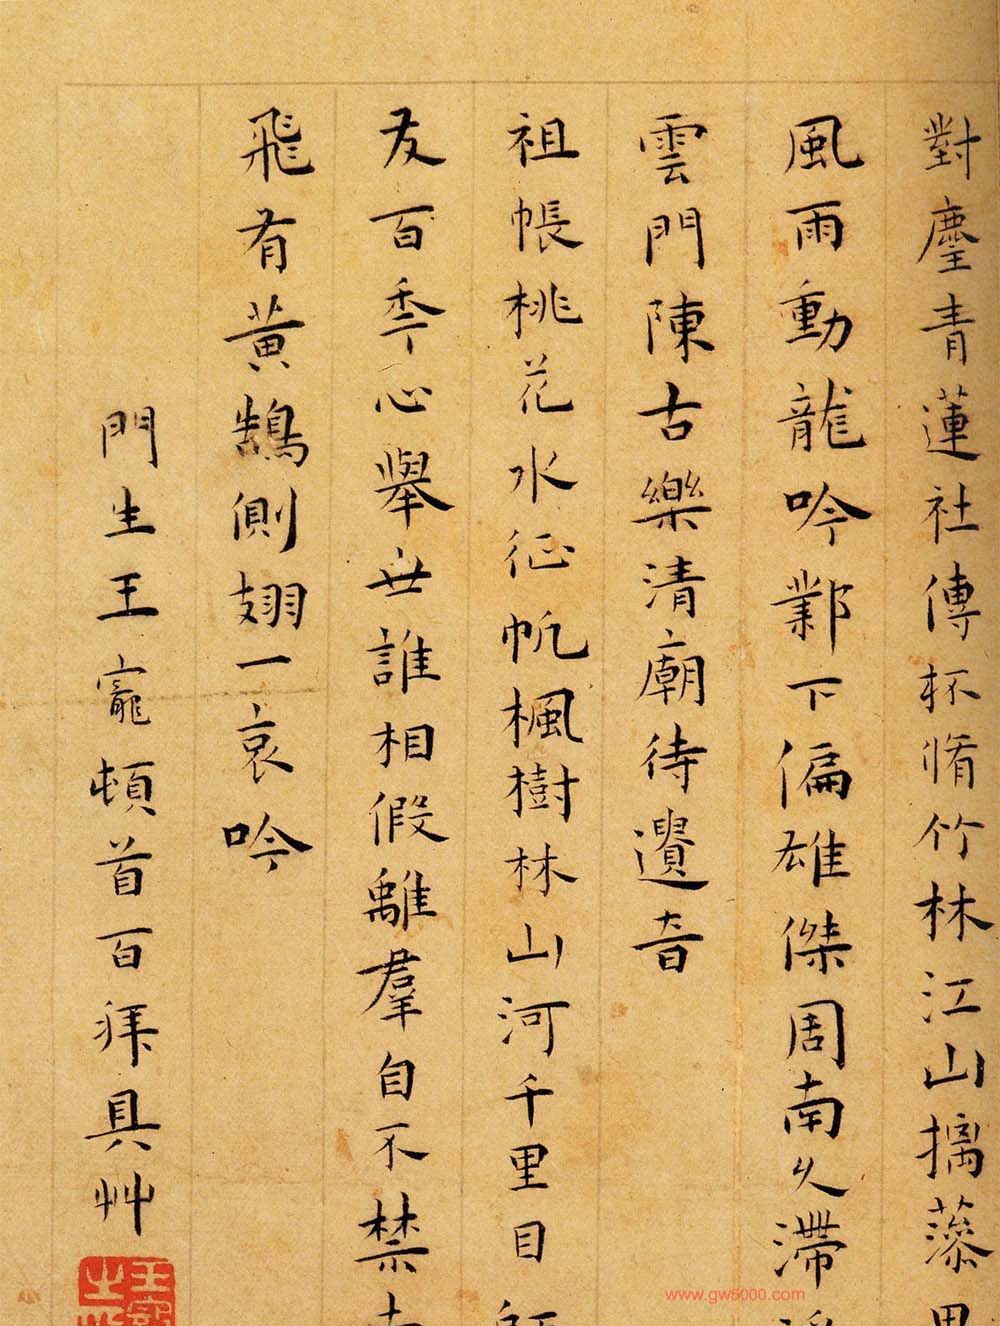 對麈青蓮社傳杯脩竹林江山摛藻思
風雨動龍吟鄴下偏雄傑周南久滯
雲門陳古樂清廟待遺音
祖帳桃花水征帆楓樹林山河千里目師
友百季心舉世誰相假離羣自不禁南
飛有黃鵠側翅一哀吟
門生王寵頓首百拜具艸
www.gw5000.com